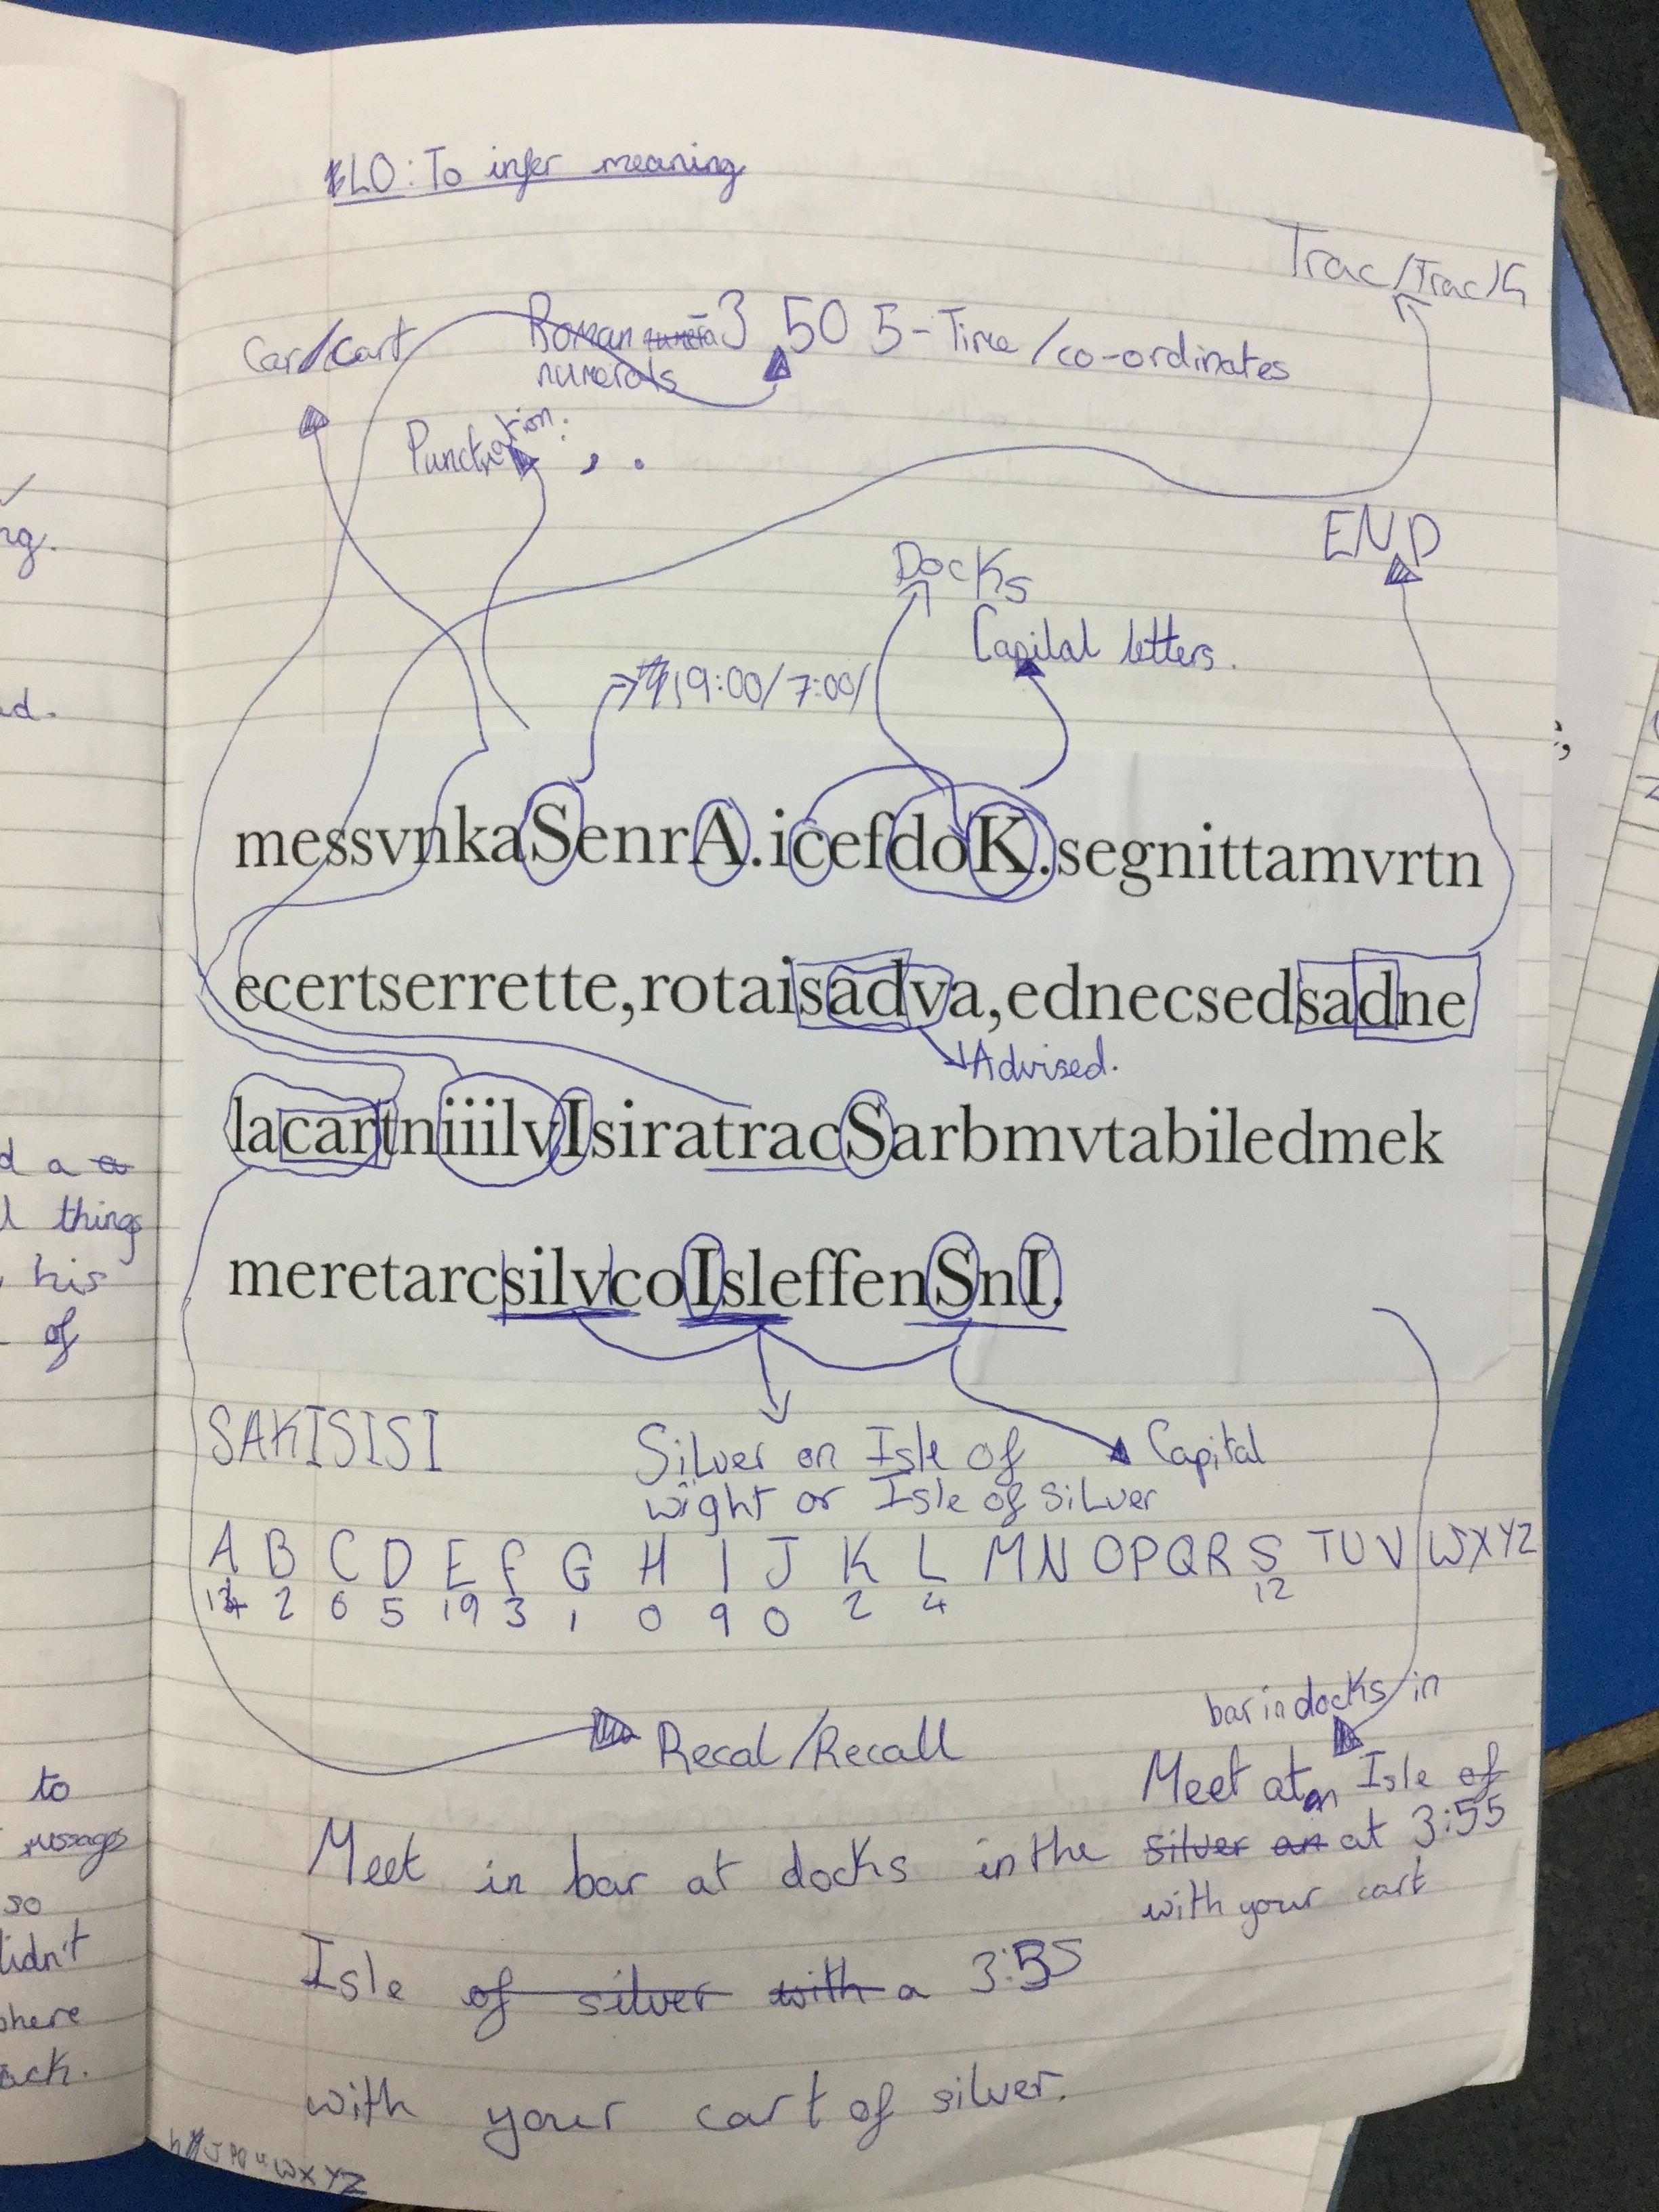 LO: To infer meaning
Trac/Track
Roman numerals 3 50 5 - Time/co-ordinates
Car/cart
Punctuation: , .
END
Docks
Capital letters.
19:00/7:00/
messvnkaSenrA.icefdoK.segnittamvrtn
ecertserrette,rotaisadva,ednecsedsadne
Advised.
lacartniiilvIsiratracSarbmvtabiledmek
meretarcsilvcoIsleffenSnI.
SAKISISI
Silver on Isle of
wight or Isle of silver
Capital
A B C D E F G H I J K L M N O P Q R S T U V W X Y Z
2 6 5 19 3 1 0 9 0 2 4 12
Recal/Recall
bar in docks in
Meet at on Isle of
silver an at 3:55
with your cart
Meet in bar at docks in the
Isle of silver with a 3:55
with your cart of silver.
ng.
d.
d a a
things
his
of
to
messages
so
didn't
where
ack.
J P Q U W X Y Z